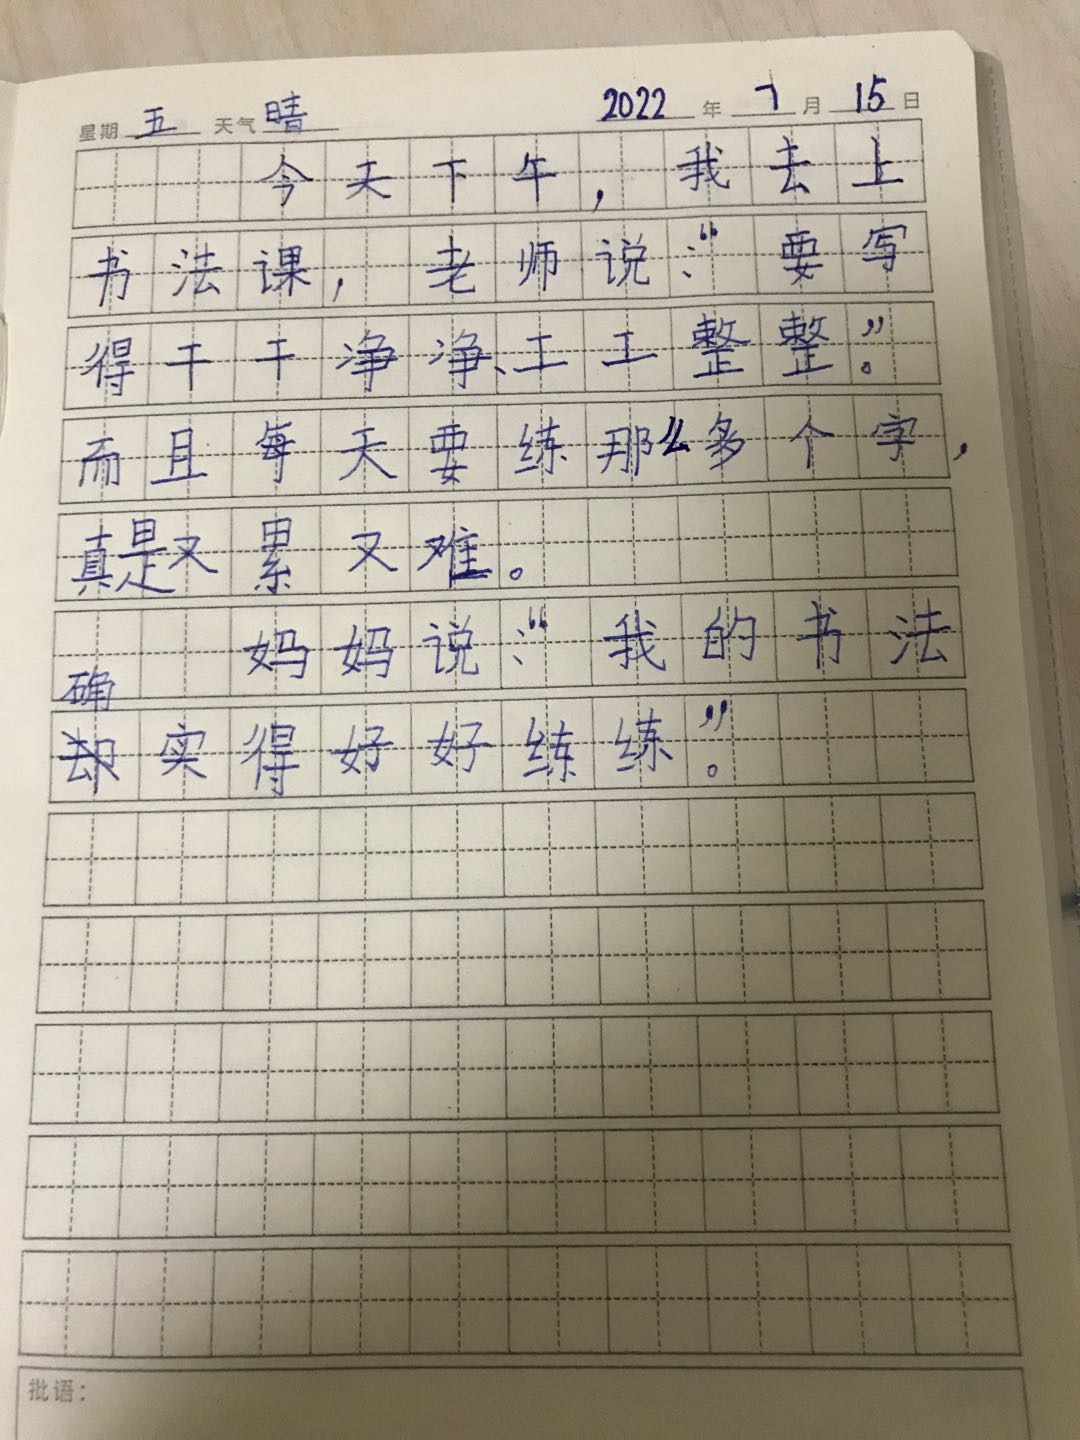 星期 五 天气 晴 2022 年 7 月 15 日
今天下午，我去上
书法课，老师说：“要写
得干干净净、工工整整”。
而且每天要练那么多个字，
真是又累又难。
妈妈说：“我的书法
确
却实得好好练练”。
批语：